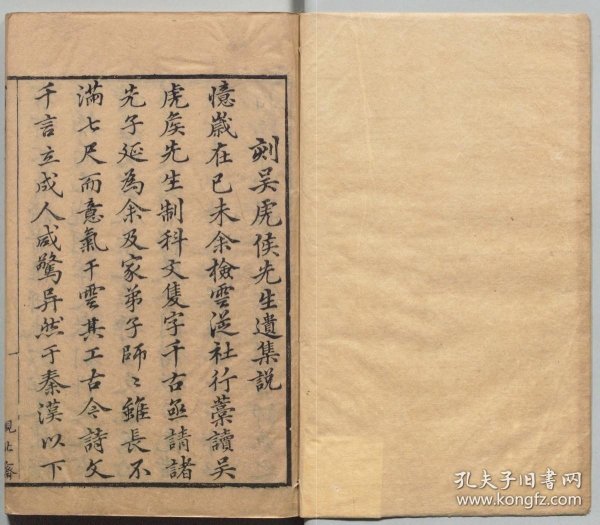 刻吳虎侯先生遺集説
憶嵗在己未余檢雲從社行藁讀吳
虎矦先生制科文隻字千古亟請諸
先子延為余及家弟子師〻雖長不
滿七尺而意氣干雲其工古今詩文
千言立成人咸驚异然于秦漢以下
孔夫子旧书网
www.kongfz.com